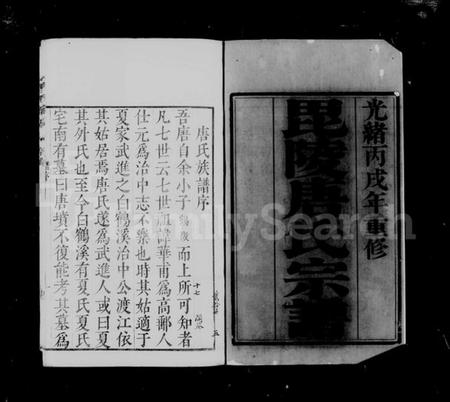 光緒丙戌年重修
毘陵唐氏宗譜
唐氏族譜序
吾唐自余小子鶴徵而上所可知者
凡七世云七世祖諱華甫為高郵人
仕元為治中志不樂也時其姑適于
夏家武進之白鶴溪治中公渡江依
其姑居焉唐氏遂為武進人或曰夏
其外氏也至今白鶴溪有夏氏夏氏
宅南有墓曰唐墳不復能考其墓為
FamilySearch